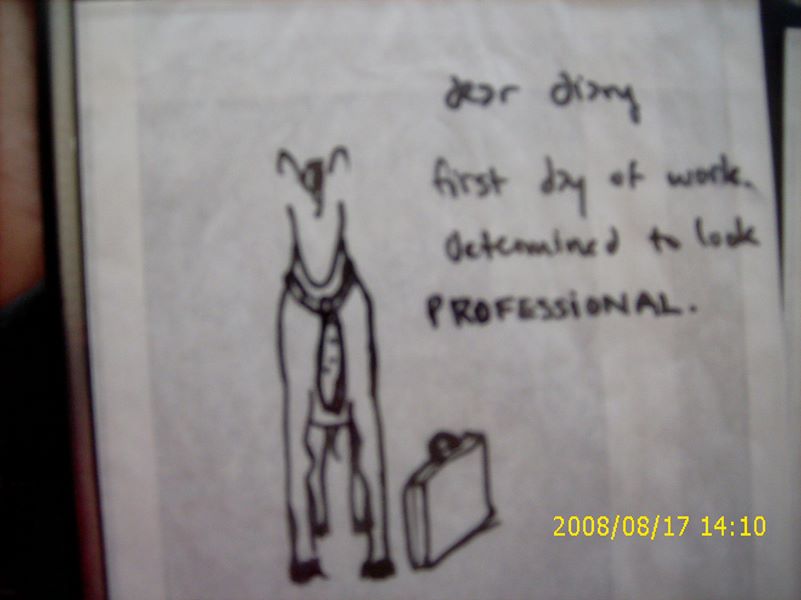 dear diary
first day of work.
determined to look
PROFESSIONAL.
2008/08/17 14:10